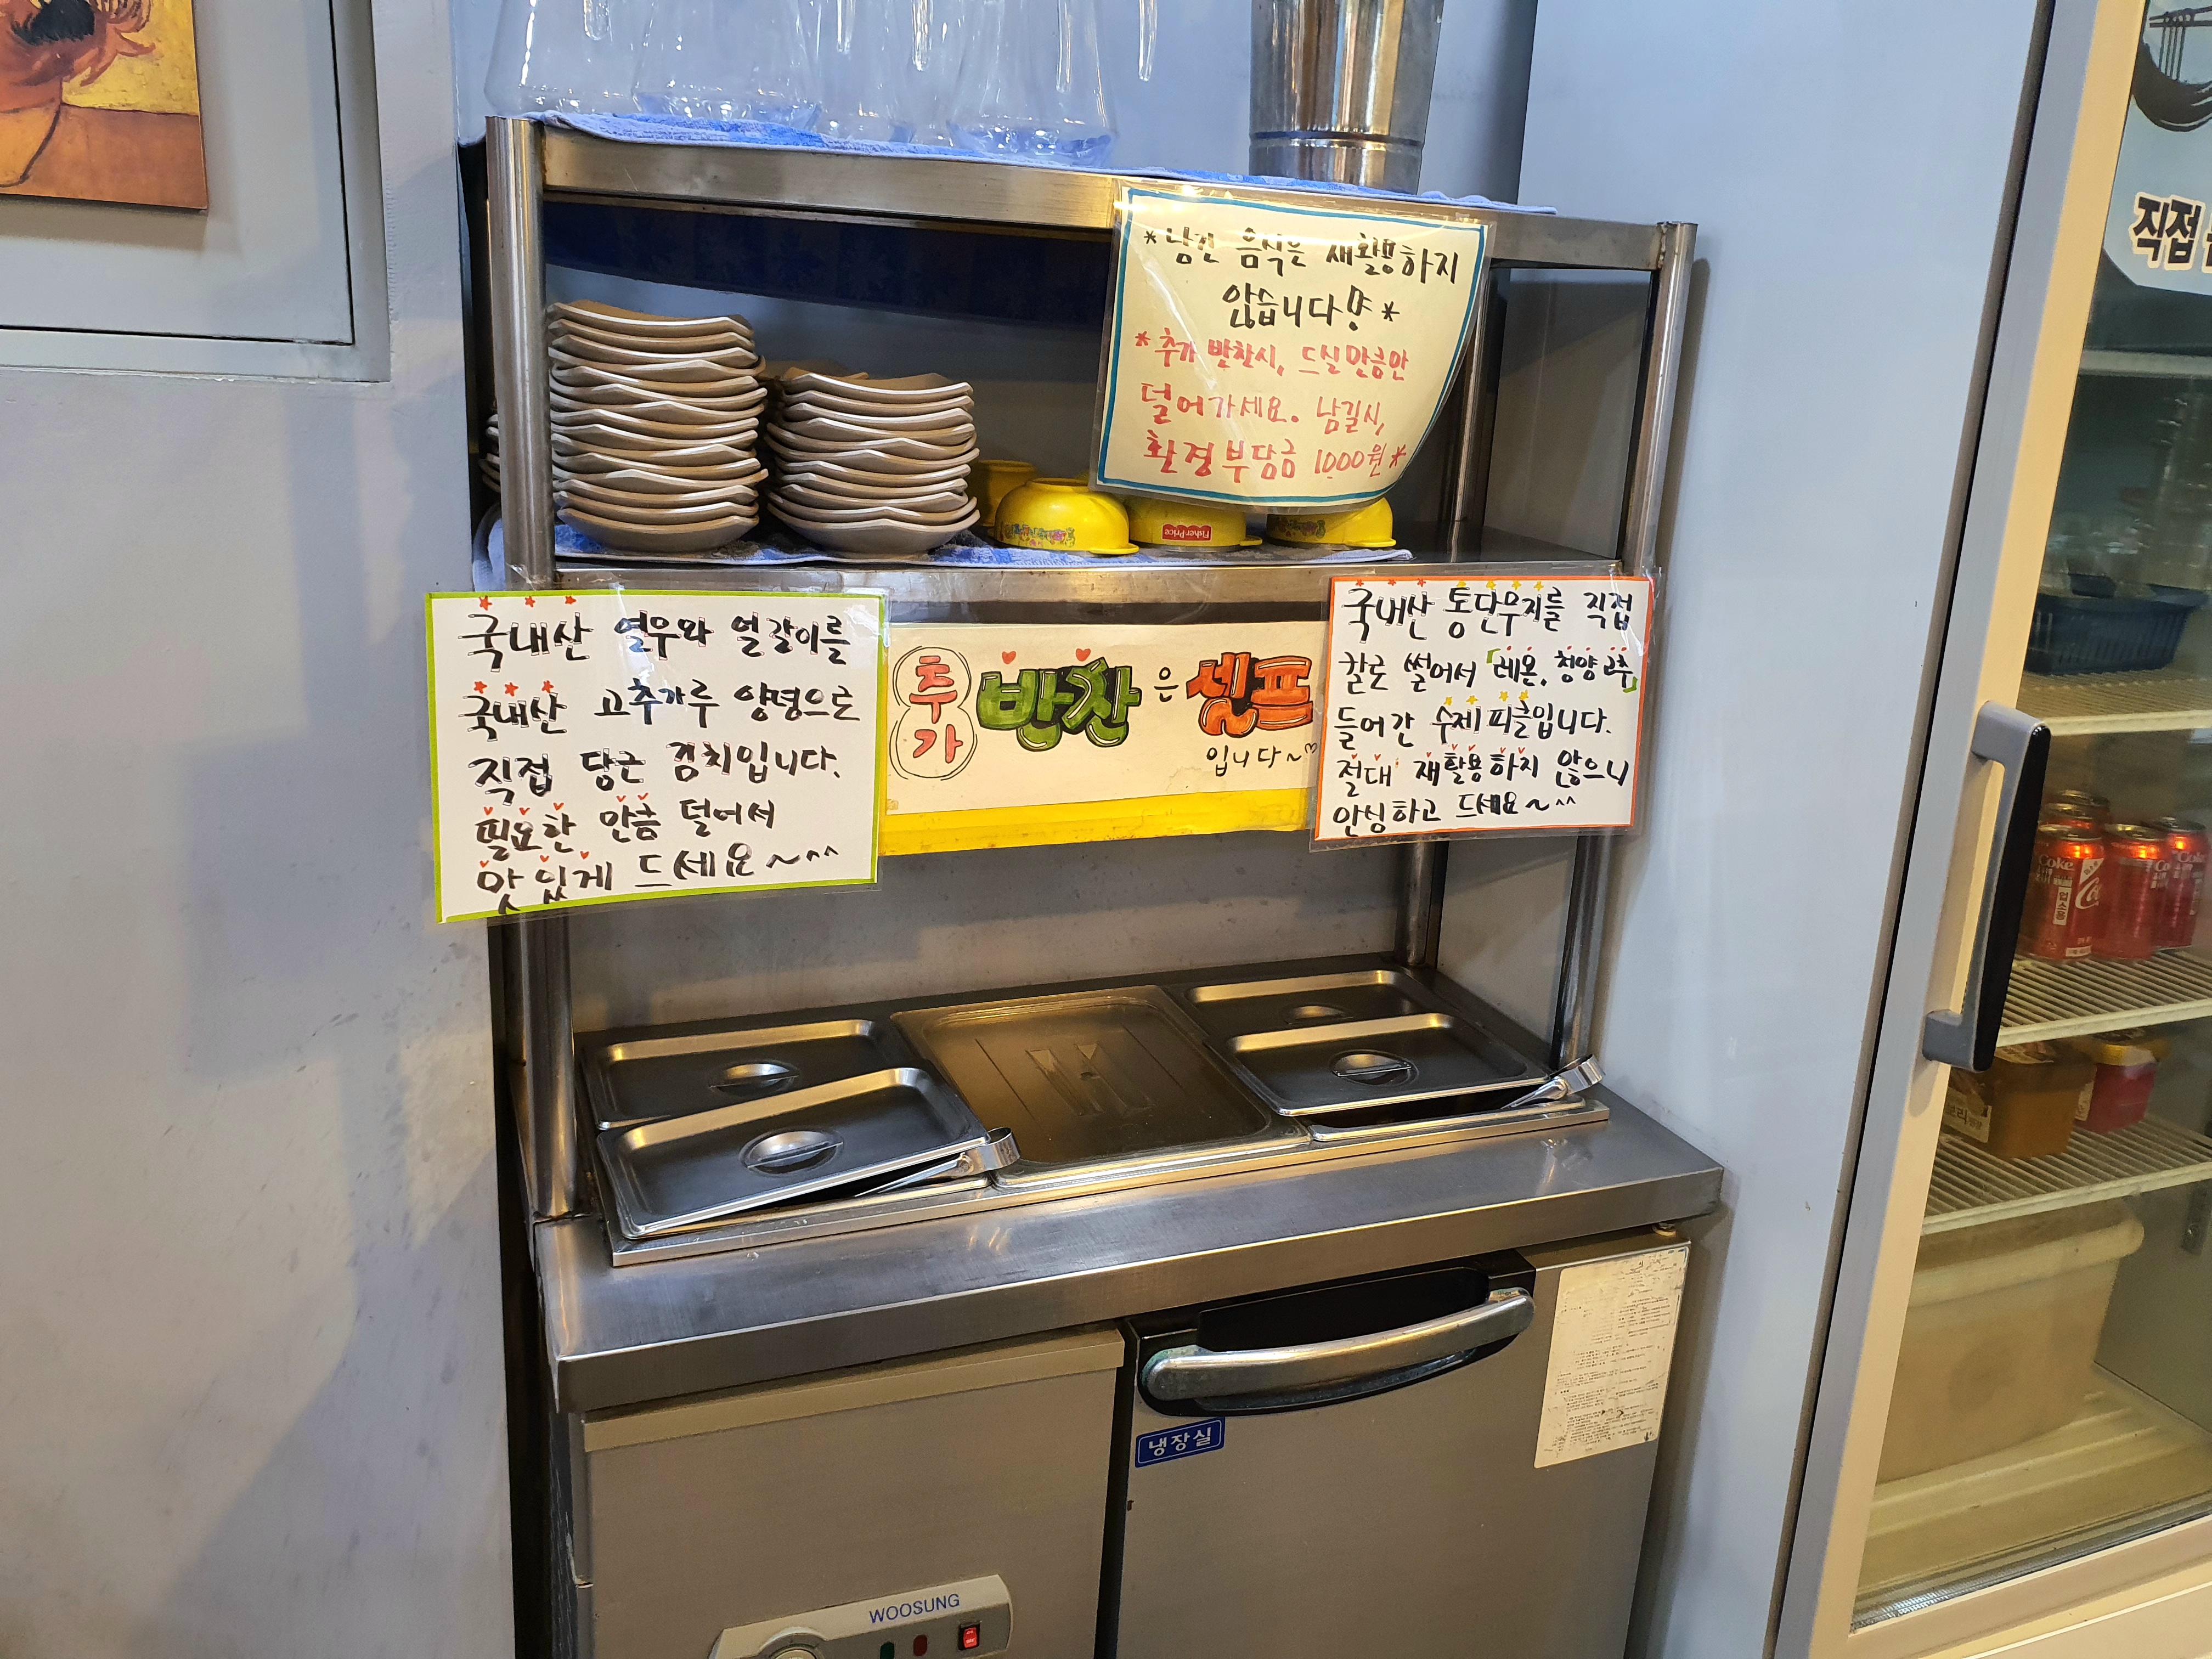 *남긴 음식은 재활용하지
않습니다!*
*추가 반찬시, 드실만큼만
덜어가세요. 남길시,
환경부담금 1000원*
직접
Fisher-Price
국내산 열무와 얼갈이를
국내산 고추가루 양념으로
직접 담근 김치입니다.
필요한 만큼 덜어서
맛있게 드세요~^^
추가 반찬은 셀프
입니다~♡
국내산 통단무지를 직접
칼로 썰어서 「레몬, 청양고추」
들어간 수제피클입니다.
절대 재활용하지 않으니
안심하고 드세요~^^
Coke
업소용
냉장실
WOOSUNG